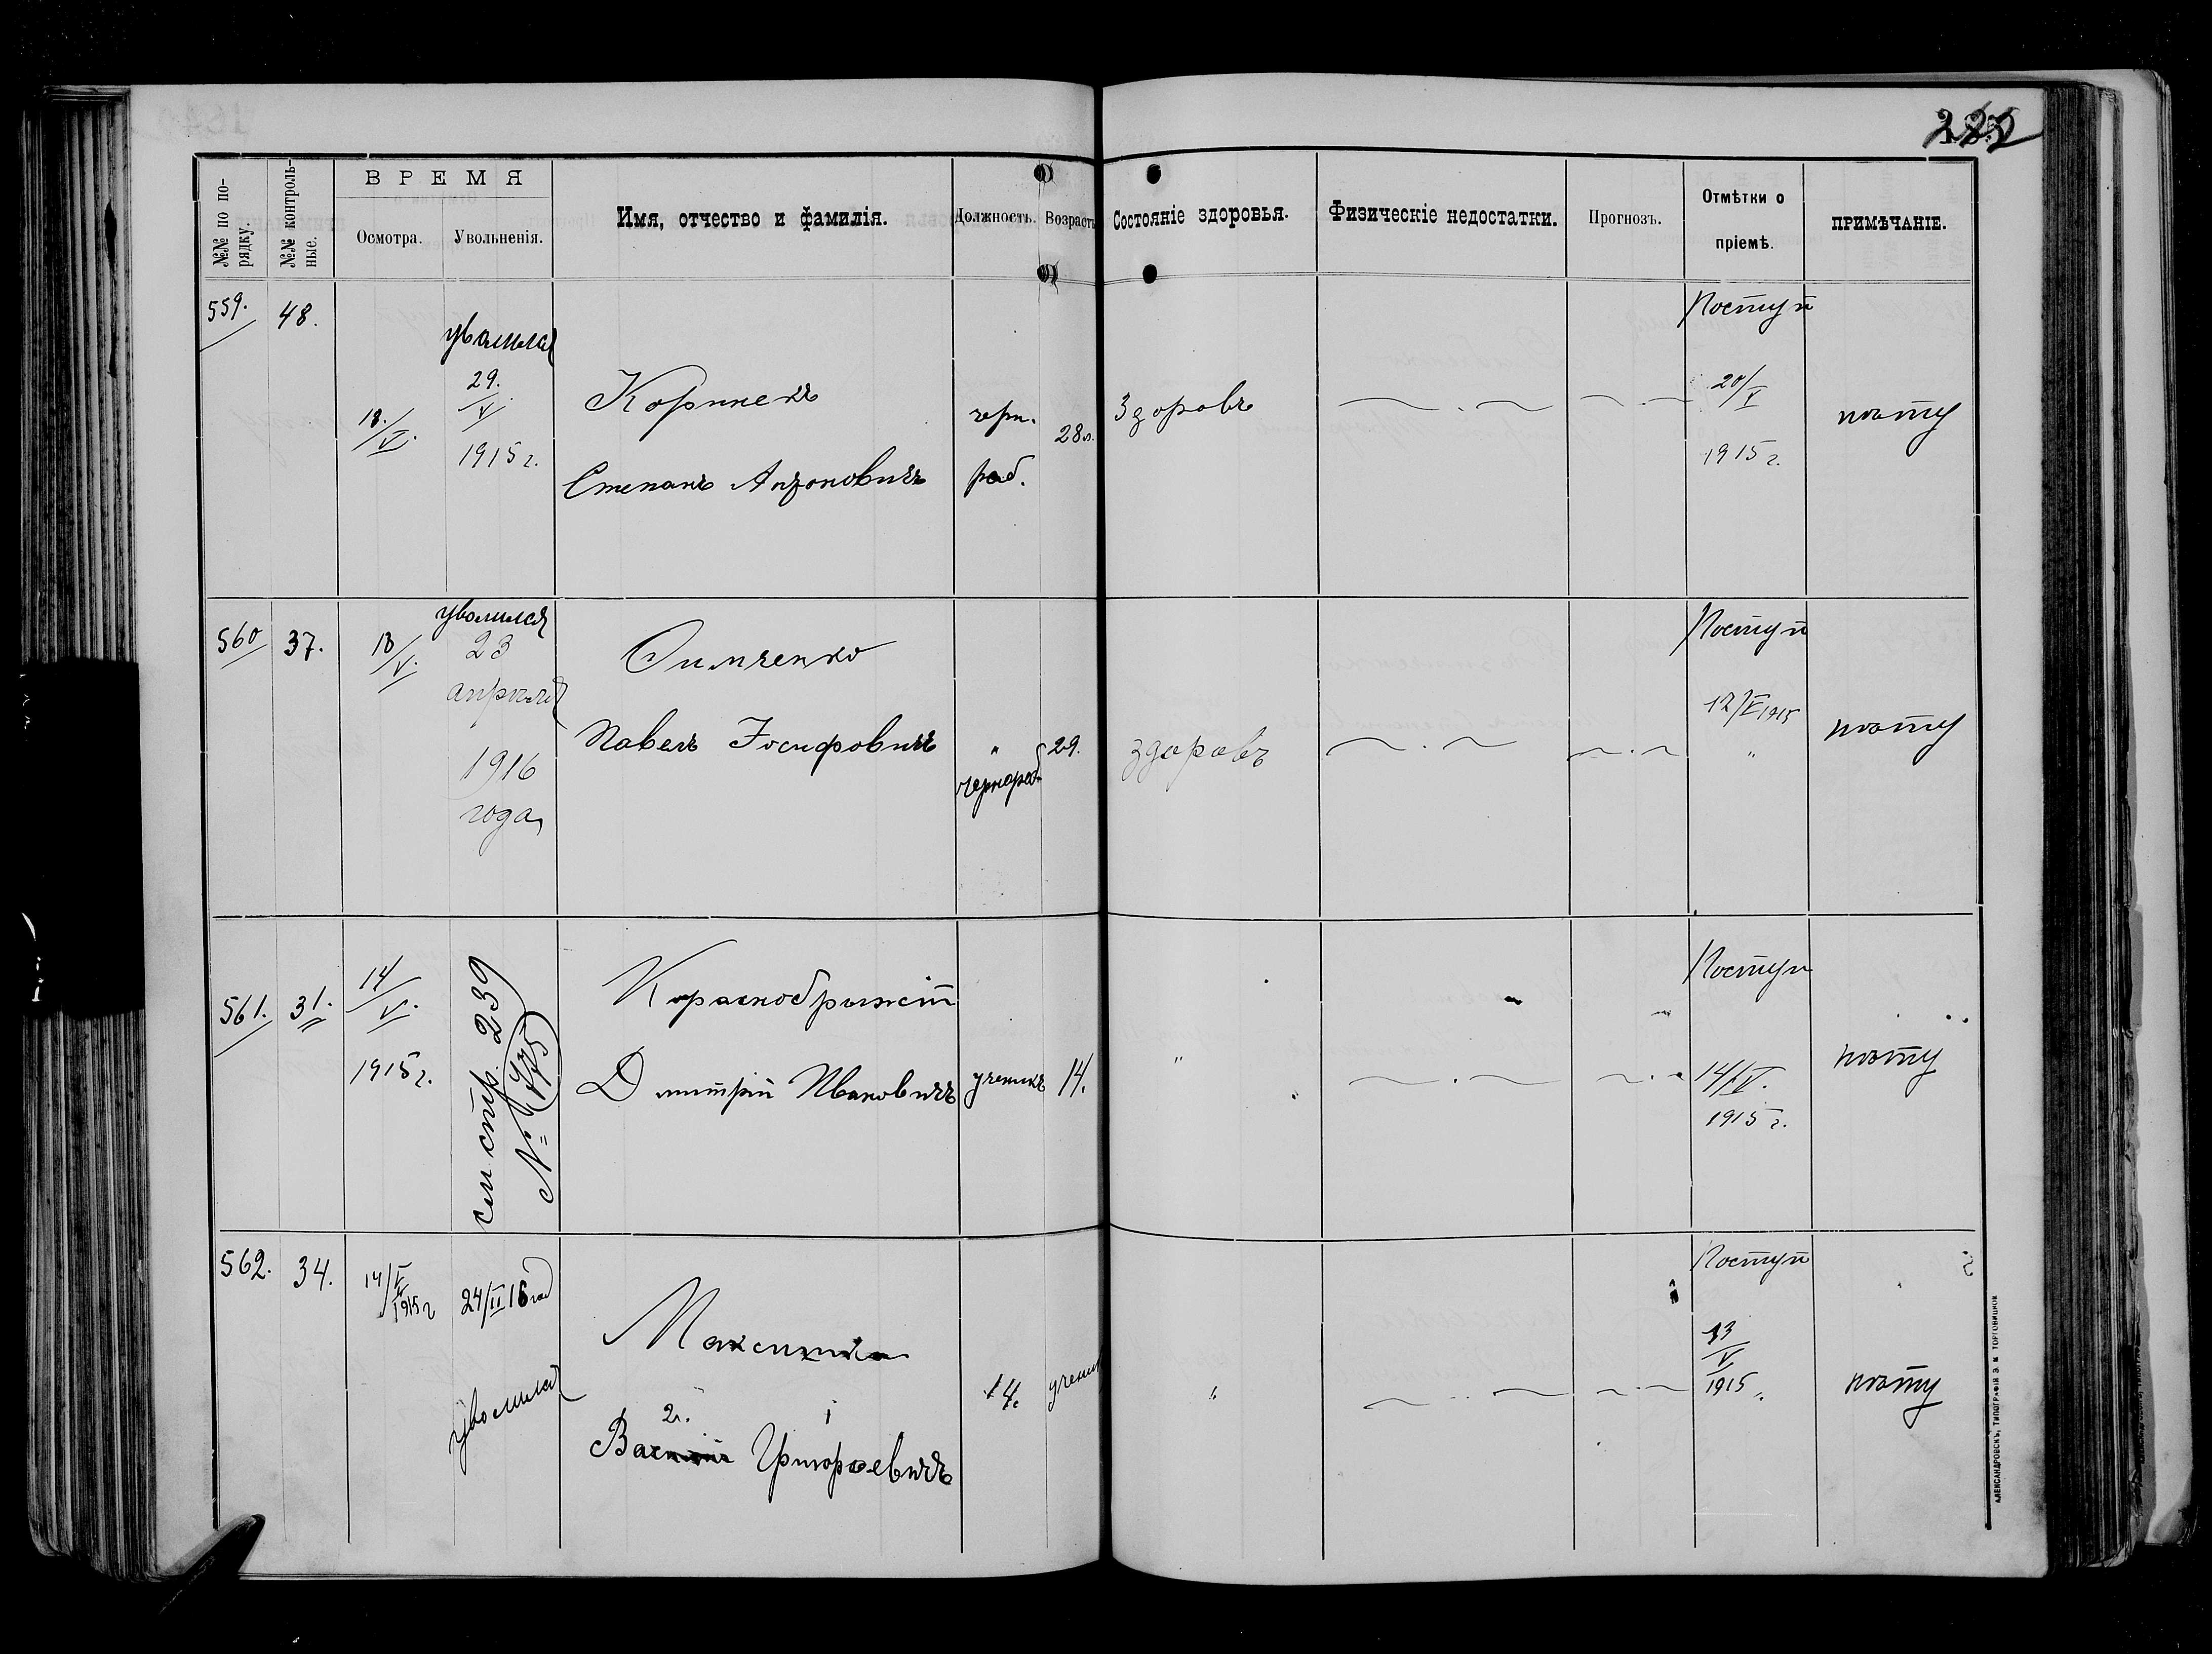 №№ по по-
рядку.
№№ контроль-
ные.
ВРЕМЯ
Осмотра.
Увольненія.
Имя, отчество и фамилія.
Должность.
Возрастъ
Состояніе здоровья.
Физическіе недостатки.
Прогнозъ.
Отмѣтки о
пріемѣ.
ПРИМѢЧАНІЕ.
559.
48.
29.
V.
1915 г.
Степанъ Антоновичъ
черн.
раб.
28 л.
Здоровъ
Поступ
20/V
1915 г.
560
37.
13/V.
уволился
23
апрѣля
1916
года
Павелъ Іосифовичъ
"
чернораб.
29.
здоровъ
Поступ
12/V 1915
"
561.
31.
14/V.
1915 г.
см стр. 239
№ 775
Краснобрыжій
Дмитрій Ивановичъ
ученикъ
14.
"
Поступ
14/V.
1915 г.
562.
34.
14/V
1915 г
24/II 16 год
уволился
2.
Григорьевичъ
14.
ученик
"
Поступ
13
V
1915
АЛЕКСАНДРОВСКЪ, ТИПОГРАФІЯ Э. М. ТОРГОВИЦКОЙ